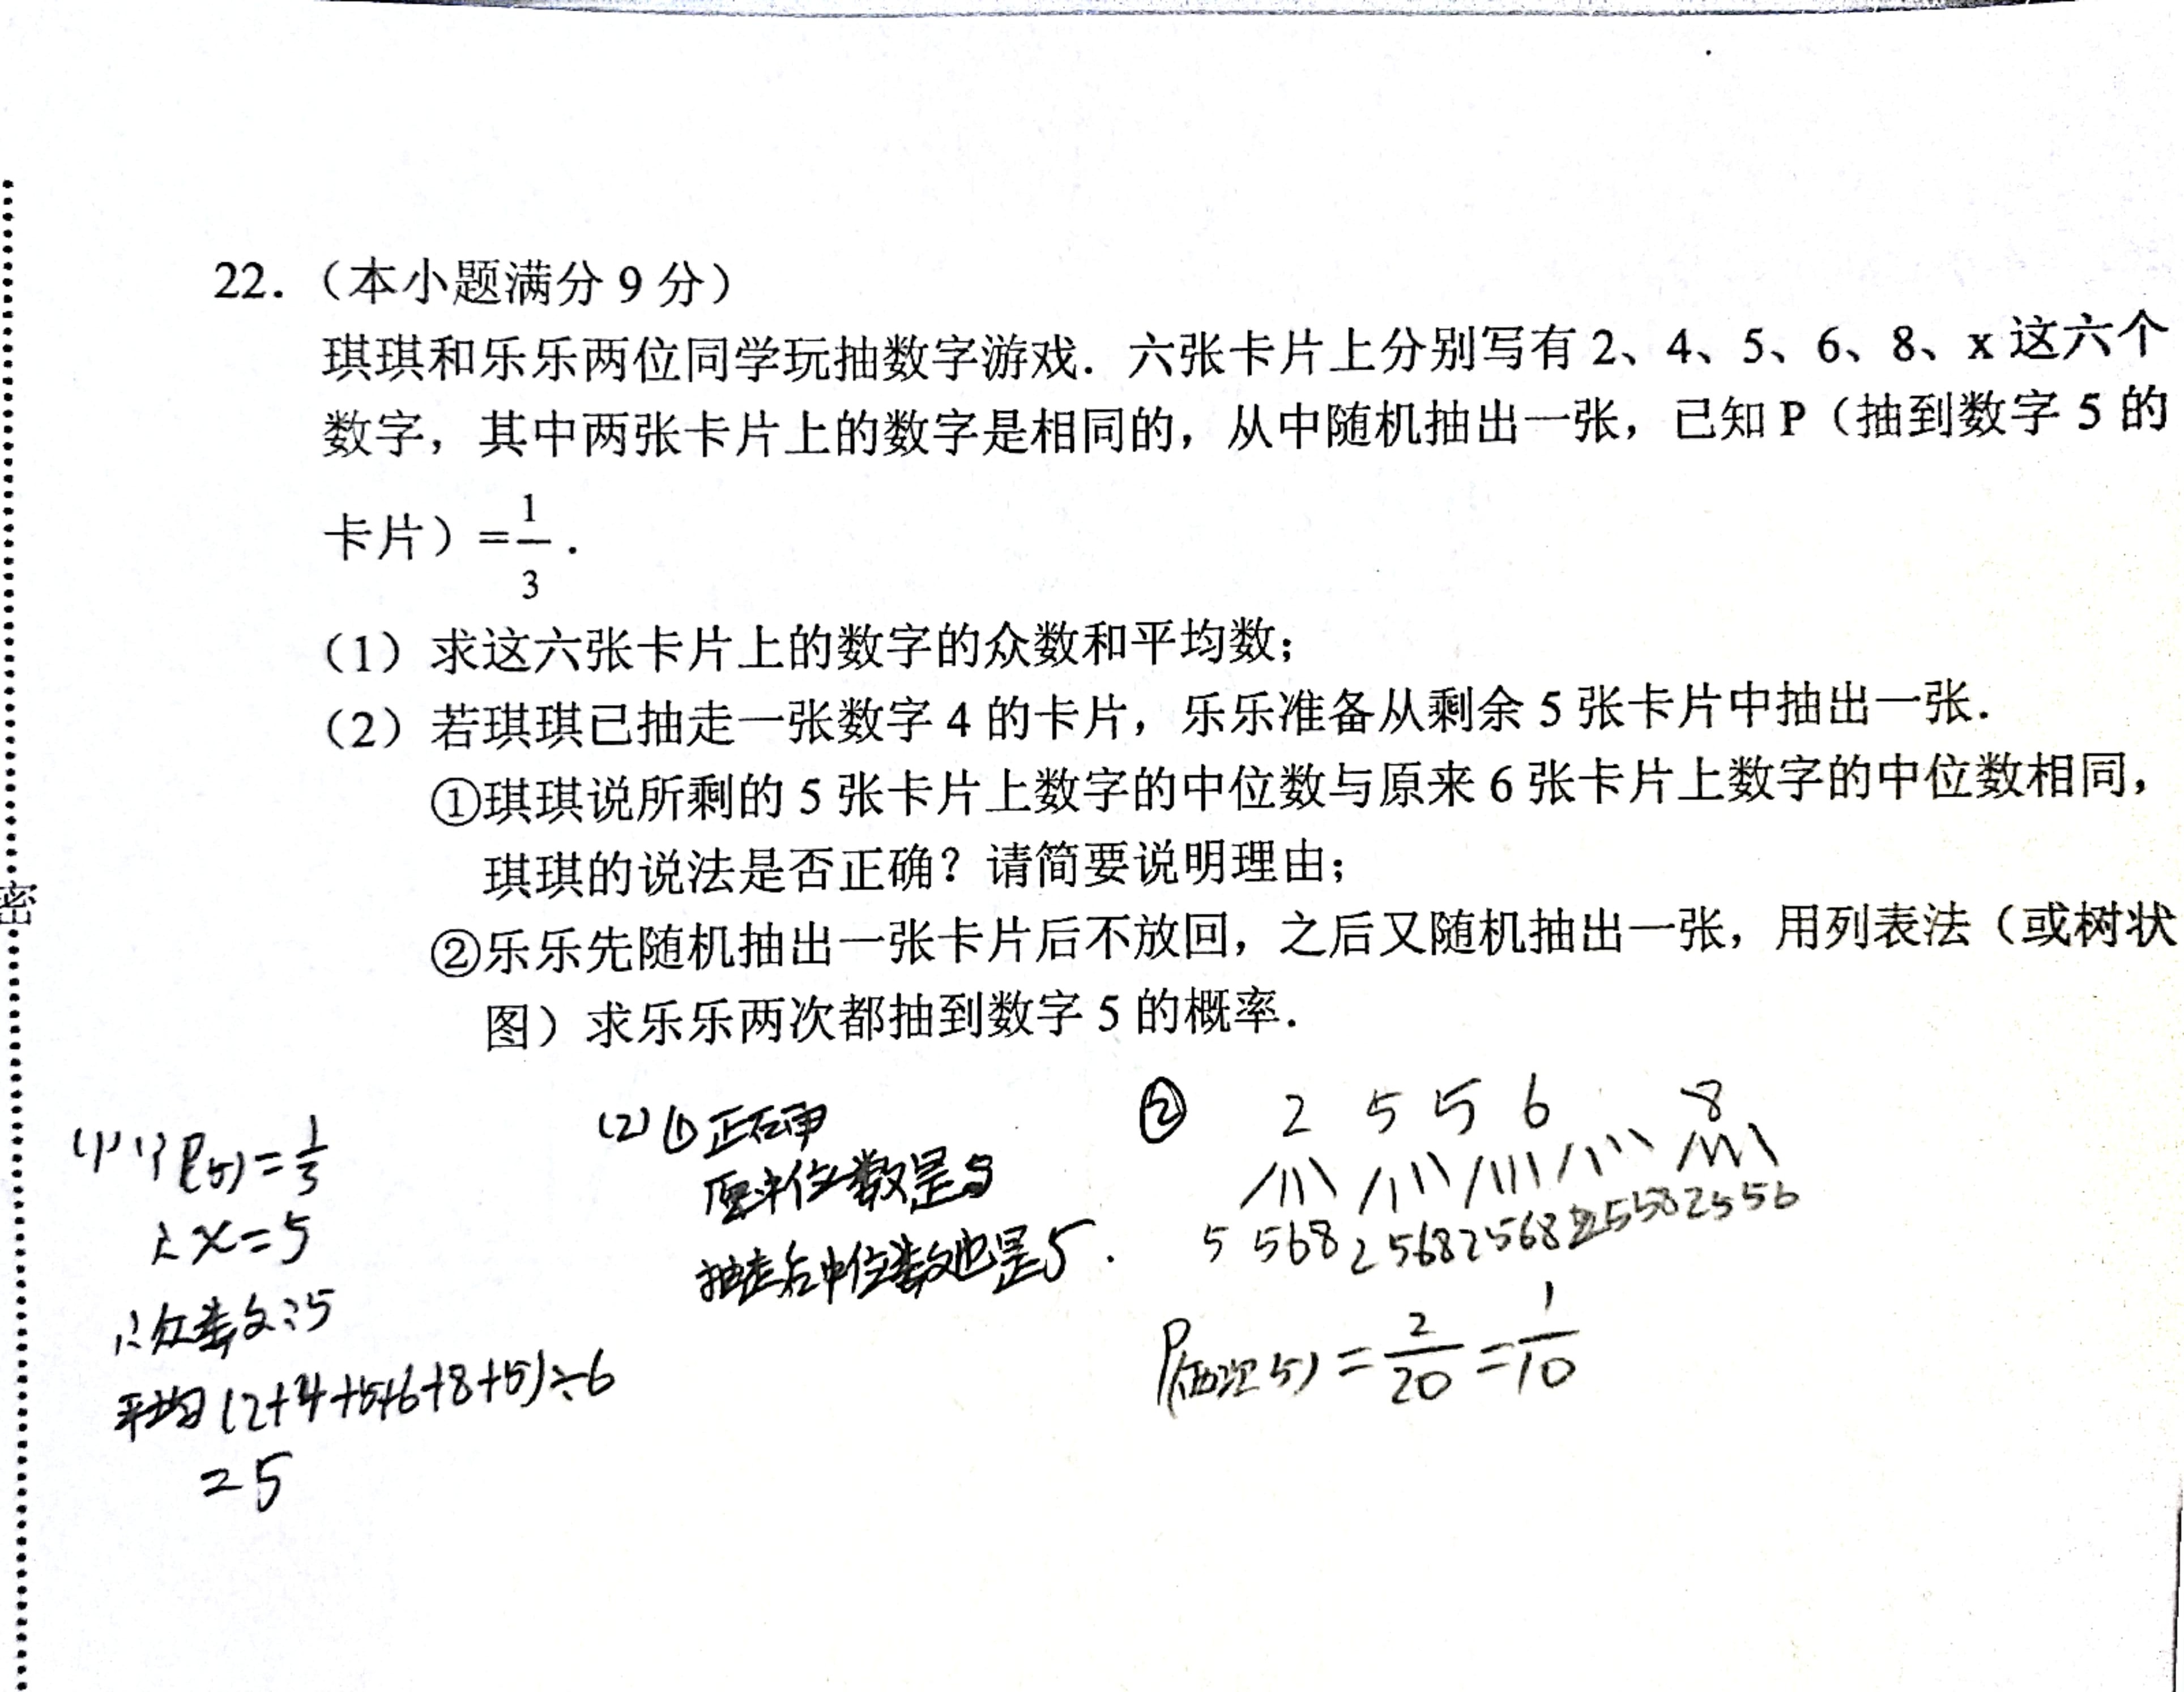 22.（本小题满分 9 分）
琪琪和乐乐两位同学玩抽数字游戏．六张卡片上分别写有 2、4、5、6、8、x 这六个
数字，其中两张卡片上的数字是相同的，从中随机抽出一张，已知 P（抽到数字 5 的
卡片）=1/3．
（1）求这六张卡片上的数字的众数和平均数；
（2）若琪琪已抽走一张数字 4 的卡片，乐乐准备从剩余 5 张卡片中抽出一张．
①琪琪说所剩的 5 张卡片上数字的中位数与原来 6 张卡片上数字的中位数相同，
琪琪的说法是否正确？请简要说明理由；
②乐乐先随机抽出一张卡片后不放回，之后又随机抽出一张，用列表法（或树状
图）求乐乐两次都抽到数字 5 的概率．
密
(1) ∵P(5)=1/3
∴x=5
∴众数:5
平均(2+4+5+6+8+5)÷6
=5
(2)①正确
原中位数是5
抽走后中位数也是5.
② 2 5 5 6 8
5 568 2568 2568 2558 2556
P(两次5)=2/20=1/10